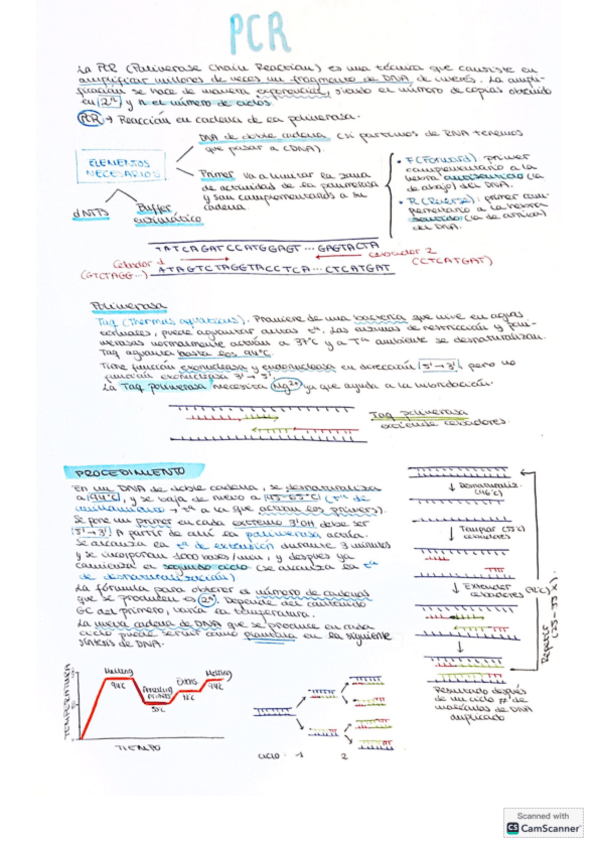 PCR
La PCR (Polimerase Chain Reaction) es una técnica que consiste en
amplificar millones de veces un fragmento de DNA de interés. La ampli-
ficación se hace de manera exponencial, siendo el número de copias obtenido
en 2ⁿ y n el número de ciclos.
PCR → Reacción en cadena de la polimerasa.
ELEMENTOS
NECESARIOS
DNA de doble cadena (si partimos de RNA tenemos
que pasar a cDNA).
Primer va a limitar la zona
de actividad de la polimerasa
y son complementarios a su
cadena.
dNTPs
Buffer
enzimático
• F (Forward): primer
complementario a la
hebra antisentido (la
de abajo) del DNA.
• R (Reverse): primer com-
plementario a la hebra
sentido (la de arriba)
del DNA.
TATCAGATCCATGGAGT ... GAGTACTA
Cebador 1
cebador 2
(GTCTAGG...)
(CTCATGAT)
ATAGTCTAGGTACCTCA ... CTCATGAT
Polimerasa
Taq (Thermus aquaticus). Proviene de una bacteria que vive en aguas
termales, puede aguantar altas tas. Las enzimas de restricción y poli-
merasas normalmente actúan a 37°C y a Ta ambiente se desnaturalizan.
Taq aguanta hasta los 94°C.
Tiene función exonucleasa y endonucleasa en dirección 5'→3', pero no
función exonucleasa 3'→5'.
La Taq polimerasa necesita Mg2+ ya que ayuda a la hibridación.
Taq polimerasa
extiende cebadores
PROCEDIMIENTO
En un DNA de doble cadena, se desnaturaliza
a 94°C, y se baja de nuevo a 45-65°C (ta de
→ ta a la que actúan los primers).
Se pone un primer en cada extremo 3'OH debe ser
5'→3'. A partir de ahí la polimerasa actúa.
Se alcanza la ta de extensión durante 3 minutos
y se incorporan 1000 bases/min, y después ya
comienza el segundo ciclo (se alcanza la ta
de desnaturalización)
La fórmula para obtener el número de cadenas
que se producen es 2ⁿ. Depende del contenido
GC del primero, varía la temperatura.
La nueva cadena de DNA que se produce en cada
ciclo puede servir como plantilla en la siguiente
síntesis de DNA.
Desnaturaliz.
Templar
cebadores
Extender
cebadores
Repetir
Resultado después
de un ciclo
moléculas de DNA
duplicado
TEMPERATURA
Melting
94°C
Annealing
50°C
72°C
Melting
94°C
TIEMPO
CICLO 1 2
Scanned with
CS CamScanner